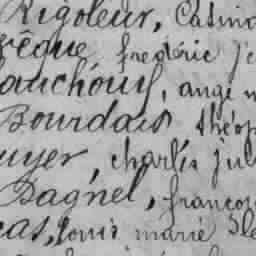 Rigoleur, Casim
êque, frédéric j
auchouy, ange
Bourdais, théop
uyer, charles jul
Dagnel, françoi
as, louis marie